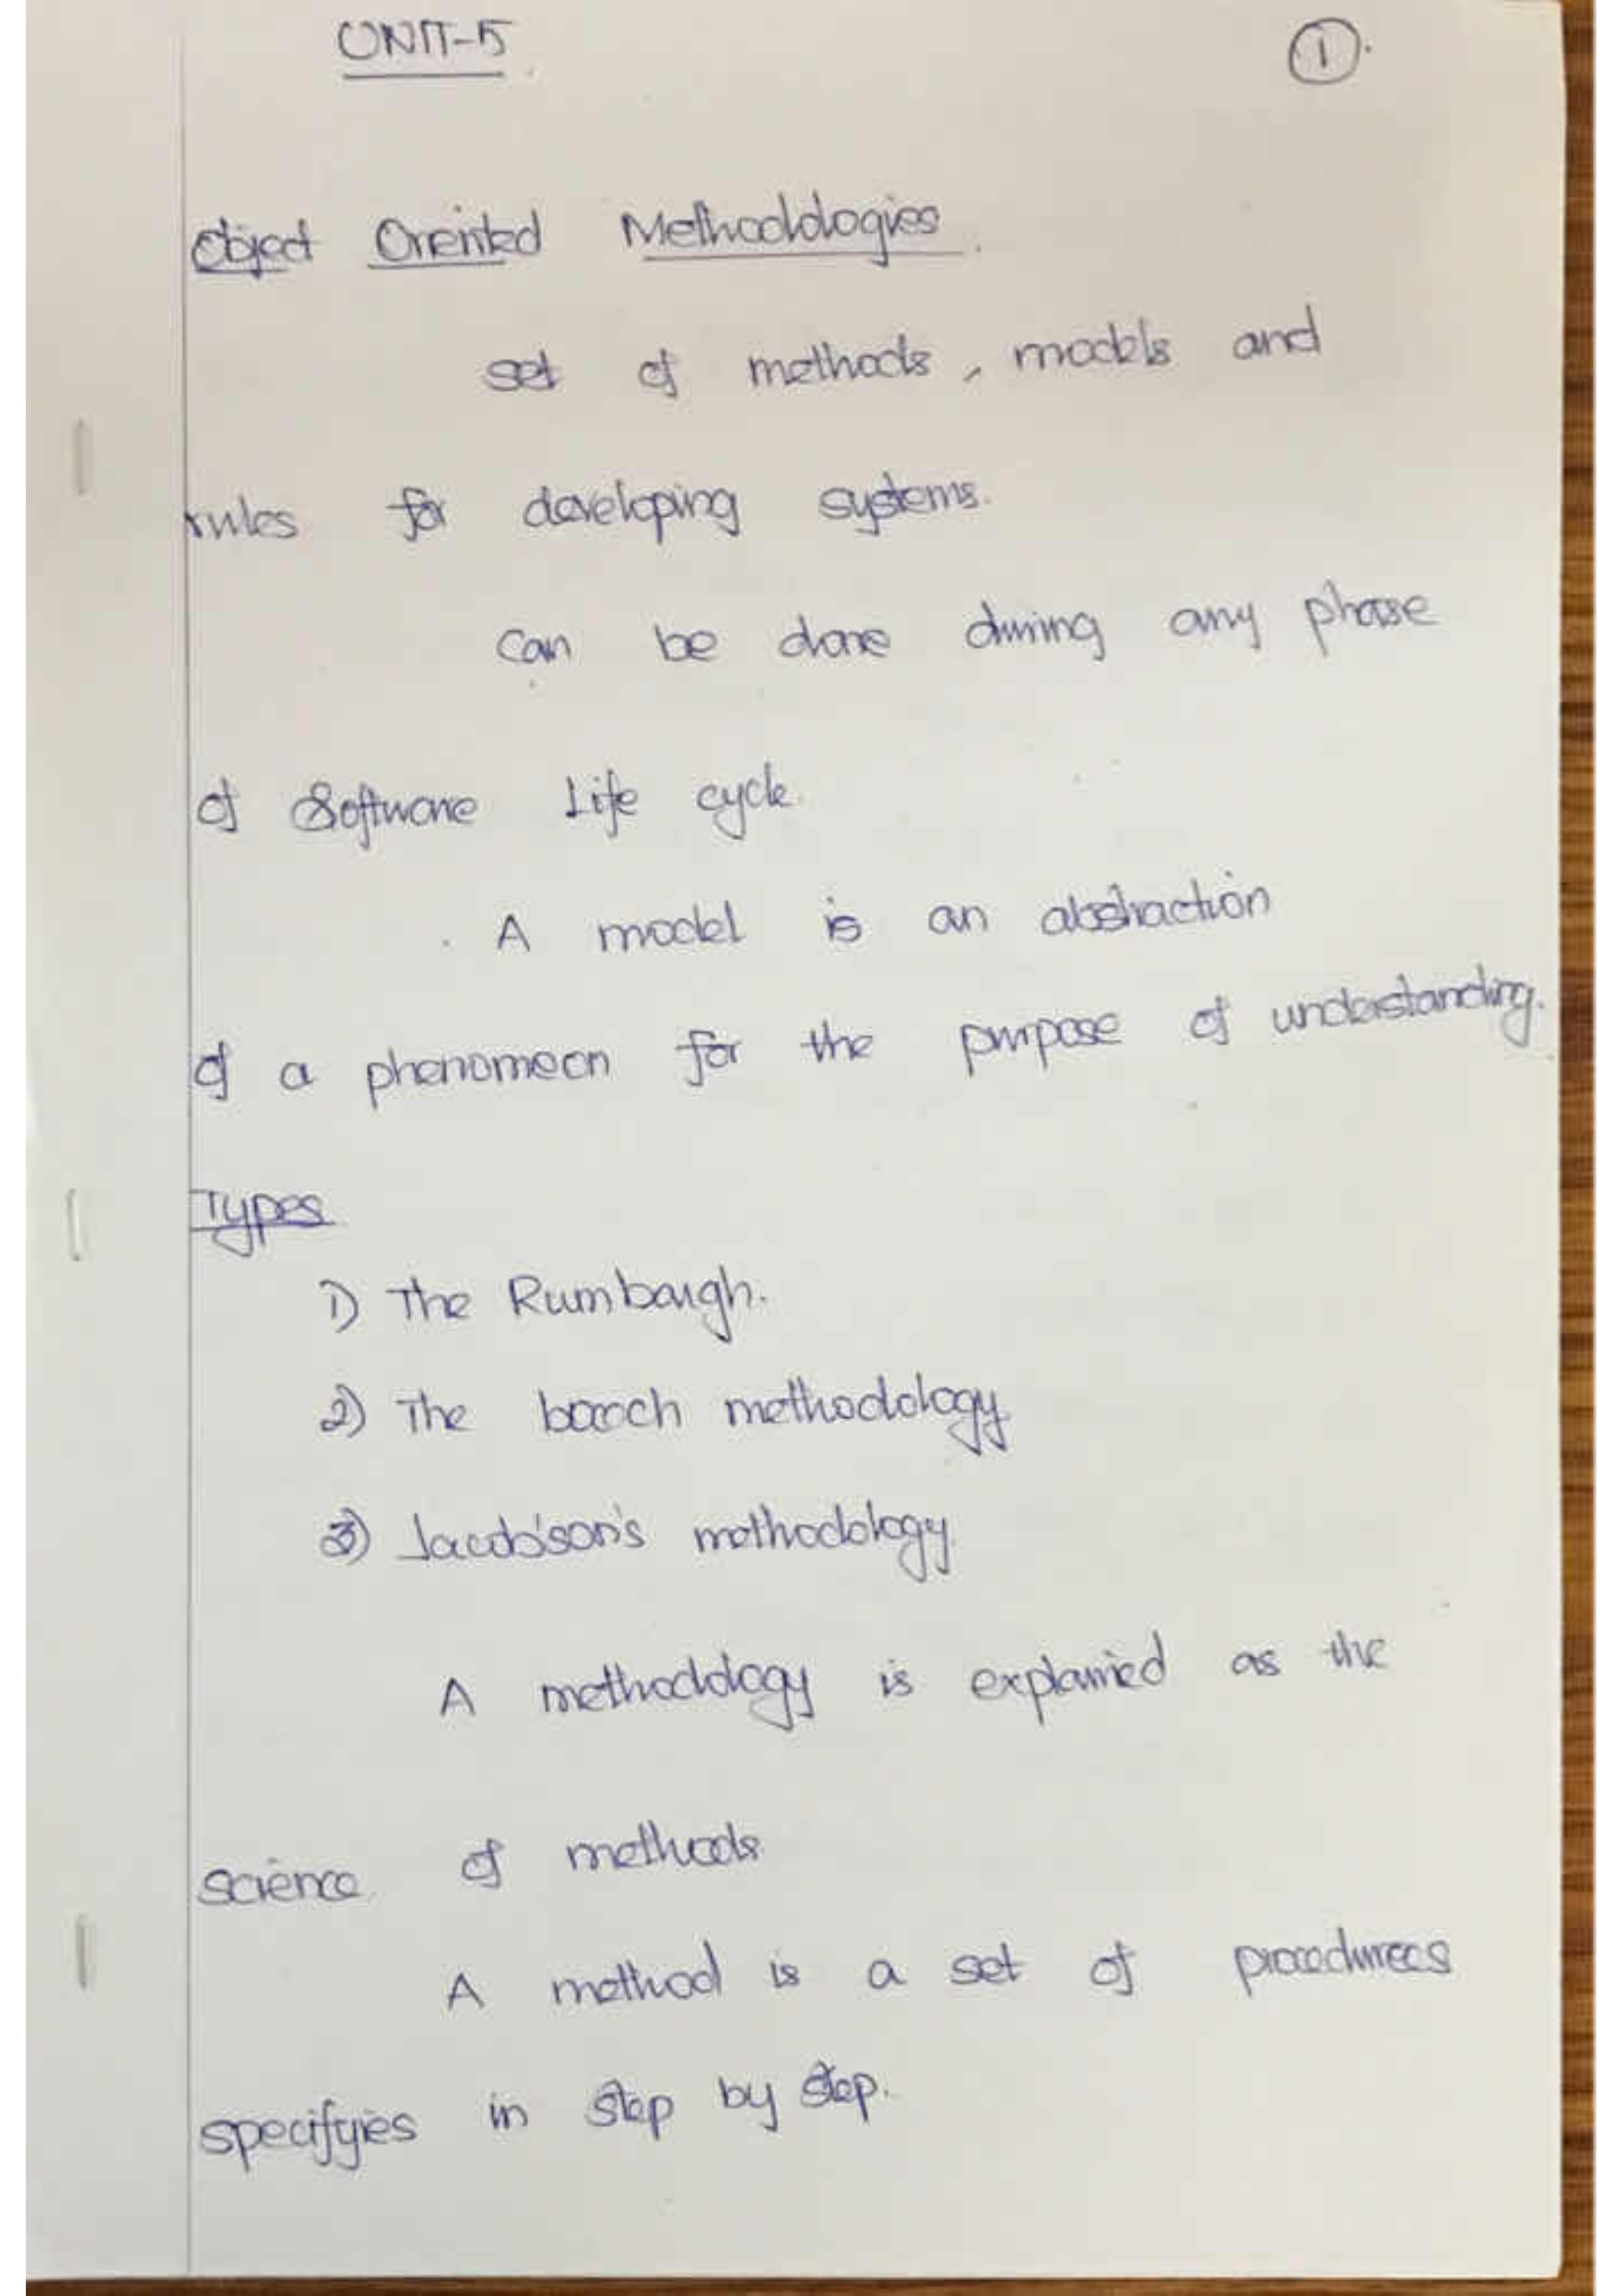 UNIT-5
1
Object Oriented Methodologies.
set of methods, models and
rules for developing systems.
can be done during any phase
of Software Life cycle.
A model is an abstraction
of a phenomeon for the purpose of understanding.
Types
1) The Rumbaugh.
2) The booch methodology
3) Jacob'son's methodology
A methodology is explained as the
science of methods
A method is a set of procedurees
specifyies in step by step.